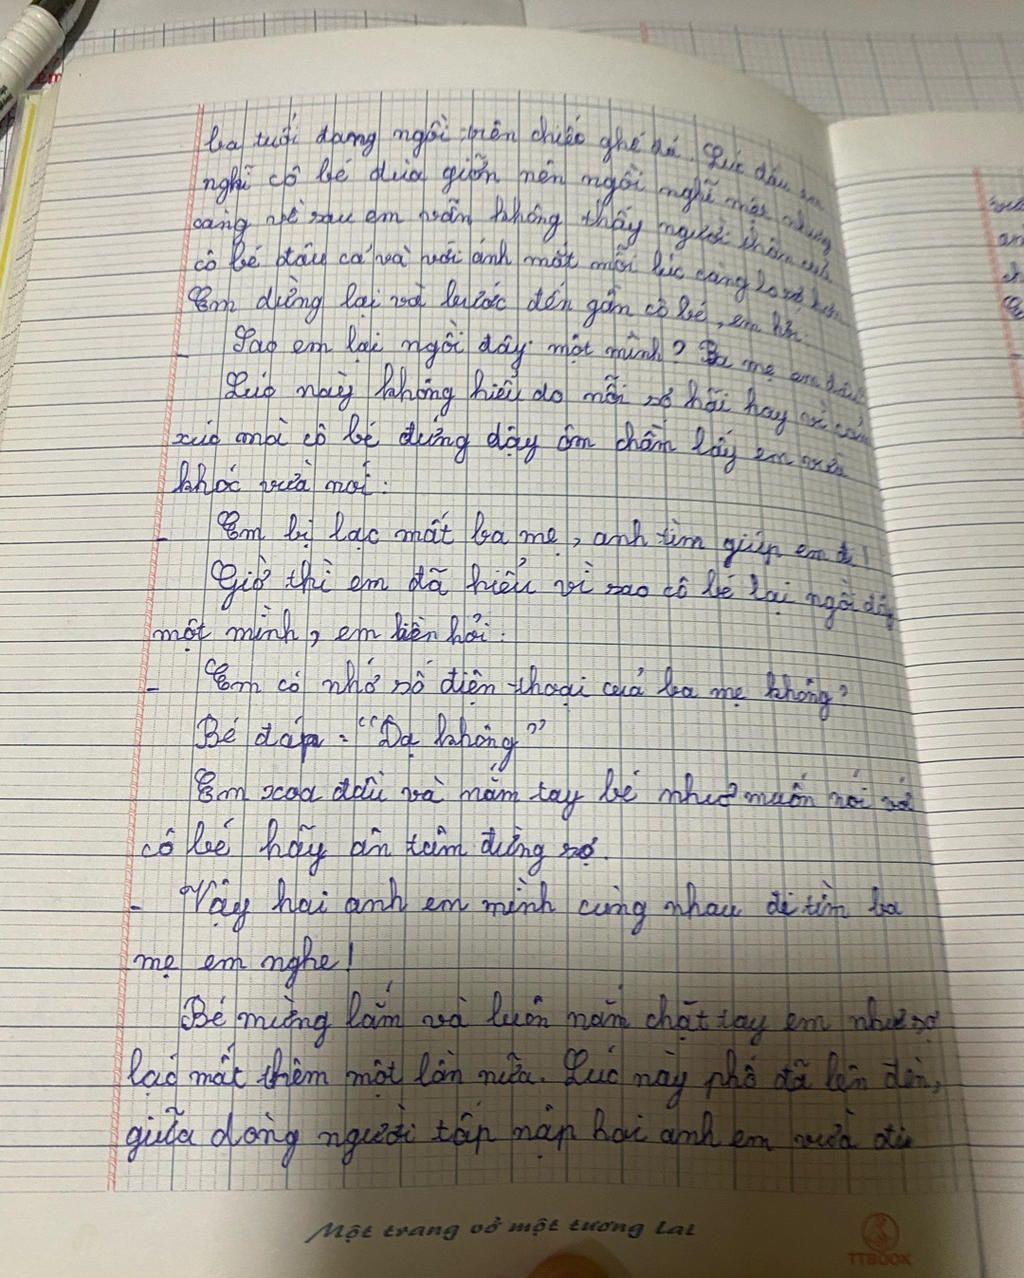 ba tuổi đang ngồi trên chiếc ghế đá. Lúc đầu em
nghĩ cô bé đùa giỡn nên ngồi nghĩ mệt nhưng
càng về sau em vẫn không thấy người thân của
cô bé đâu cả và với ánh mắt mỗi lúc càng lo sợ hơn
Em dừng lại và bước đến gần cô bé, em hỏi:
- Sao em lại ngồi đây một mình? Ba mẹ em đâu
Lúc này không hiểu do nỗi sợ hãi hay vì cảm
xúc mà cô bé đứng dậy ôm chầm lấy em vừa
khóc vừa nói:
- Em bị lạc mất ba mẹ, anh tìm giúp em đi!
Giờ thì em đã hiểu vì sao cô bé lại ngồi đây
một mình, em liền hỏi:
- Em có nhớ số điện thoại của ba mẹ không?
Bé đáp: "Dạ không"
Em xoa đầu và nắm tay bé như muốn nói với
cô bé hãy ân tâm đừng sợ.
- Vậy hai anh em mình cùng nhau đi tìm ba
mẹ em nghe!
Bé mừng lắm và luôn nắm chặt tay em như sợ
lạc mất thêm một lần nữa. Lúc này phố đã lên đèn,
giữa dòng người tấp nập hai anh em vừa đi
Một trang vở một tương lai
TTBOOK